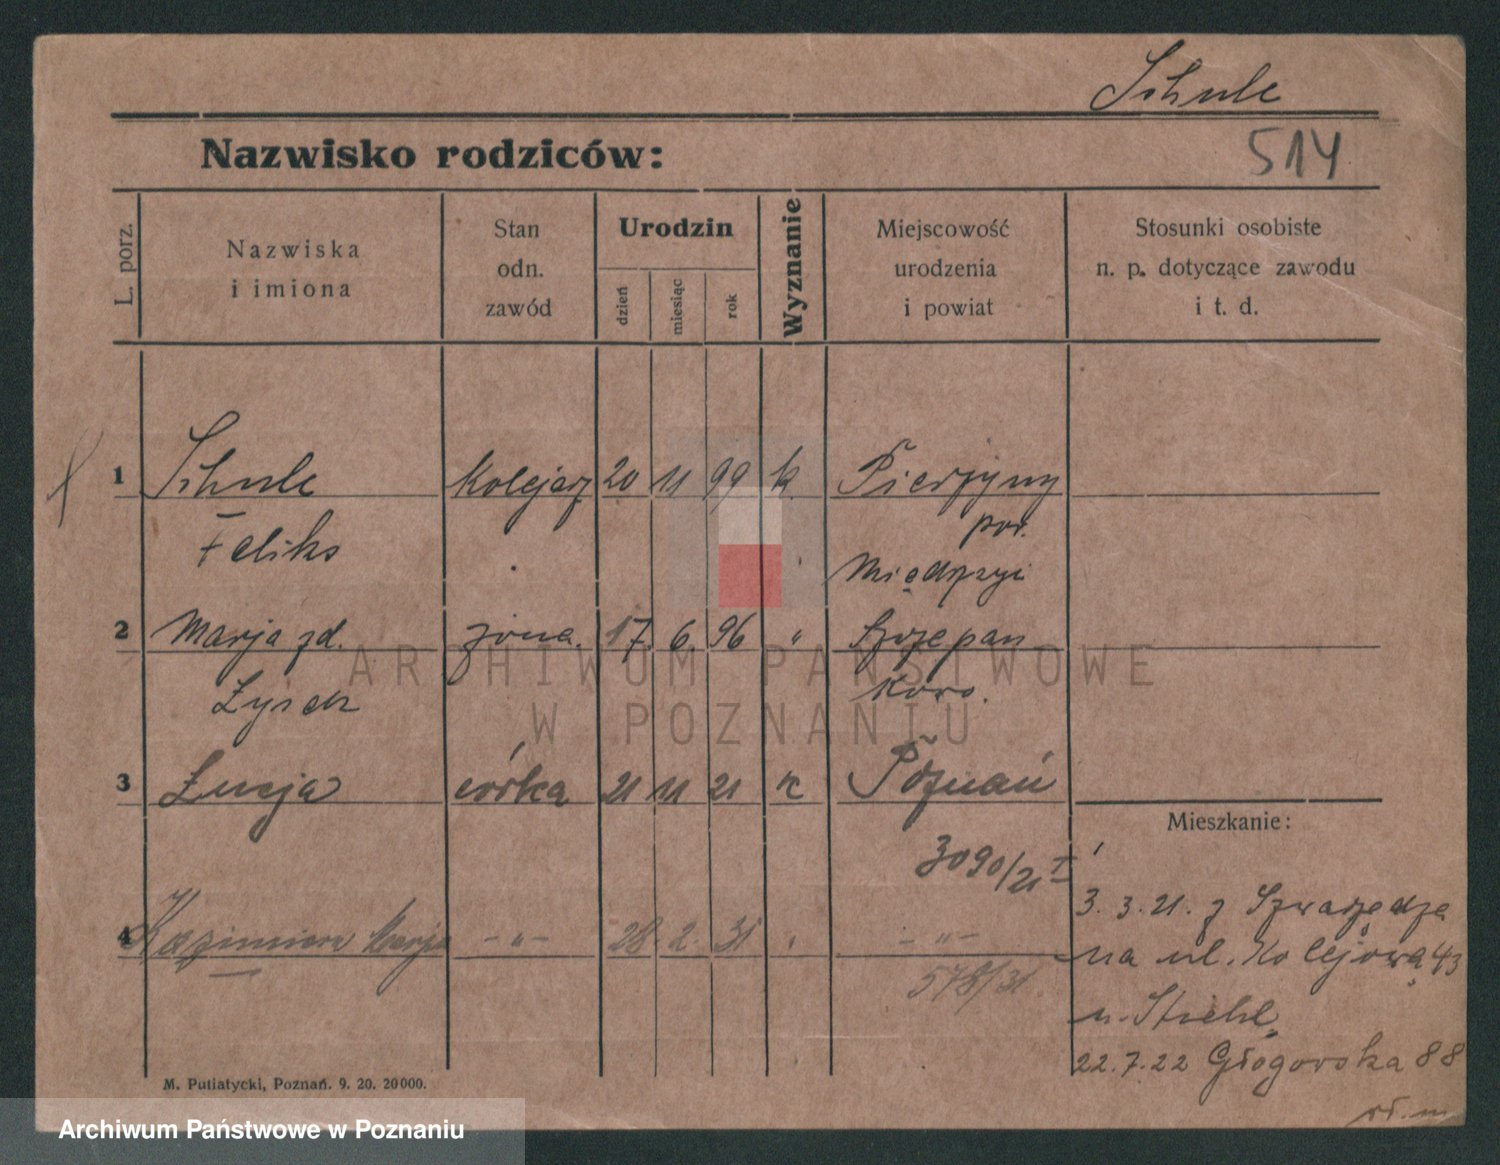 Schulc
Nazwisko rodziców:
514
L. porz.
Nazwiska
i imiona
Stan
odn.
zawód
Urodzin
dzień
miesiąc
rok
Wyznanie
Miejscowość
urodzenia
i powiat
Stosunki osobiste
n. p. dotyczące zawodu
i t. d.
1 Schulc Kolejarz 20 11 99 k. Pierzyny
Feliks pow.
2 Marja zd. żona. 17. 6. 96 " Szczepan
3 Łucja córka 21 11 21 k Poznań
3090/21 I
4 Kazimiera Marja -"- 28. 2. 31 " -"-
578/31
Mieszkanie:
3. 3. 21. z Swarzędza
na ul. Kolejową 43
22.7.22 Głogowska 88
M. Putiatycki, Poznań. 9. 20. 20000.
ARCHIWUM PAŃSTWOWE
W POZNANIU
Archiwum Państwowe w Poznaniu